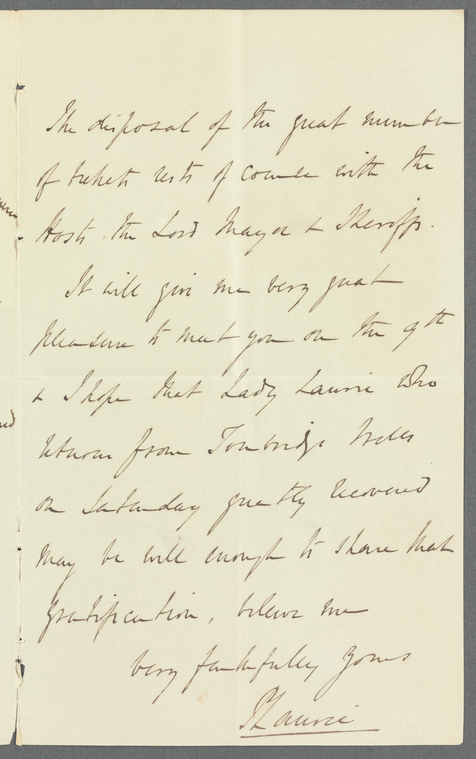 The disposal of the great number
of tickets rests of course with the
Hosts. the Lord Mayor & Sheriffs.
It will give me very great
pleasure to meet you on the 9th
& I hope that Lady Laurie who
returns from Tonbridge Wells
on Saturday greatly recovered
may be well enough to share that
gratification, believe me
very faithfully yours
Laurie